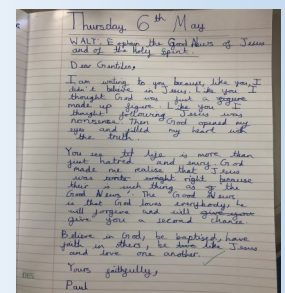 Thursday 6th May
WALT: Explain the Good News of Jesus
and of the Holy Spirit.
Dear Gentiles,
I am writing to you because, like you, I
didn't believe in Jesus. Like you I
thought God was just a
made up figure. Like you I
thought following Jesus was
nonsense. Then God opened my
eyes and filled my heart with
the truth.
You see life is more than
just hatred and envy. God
made me realise that Jesus
was right because
their is such thing as the
Good News. The Good News
is that God loves everybody, he
will forgive and will
give you a second chance.
Believe in God, be baptised, have
faith in others, be like Jesus
and love one another.
Yours faithfully,
Paul